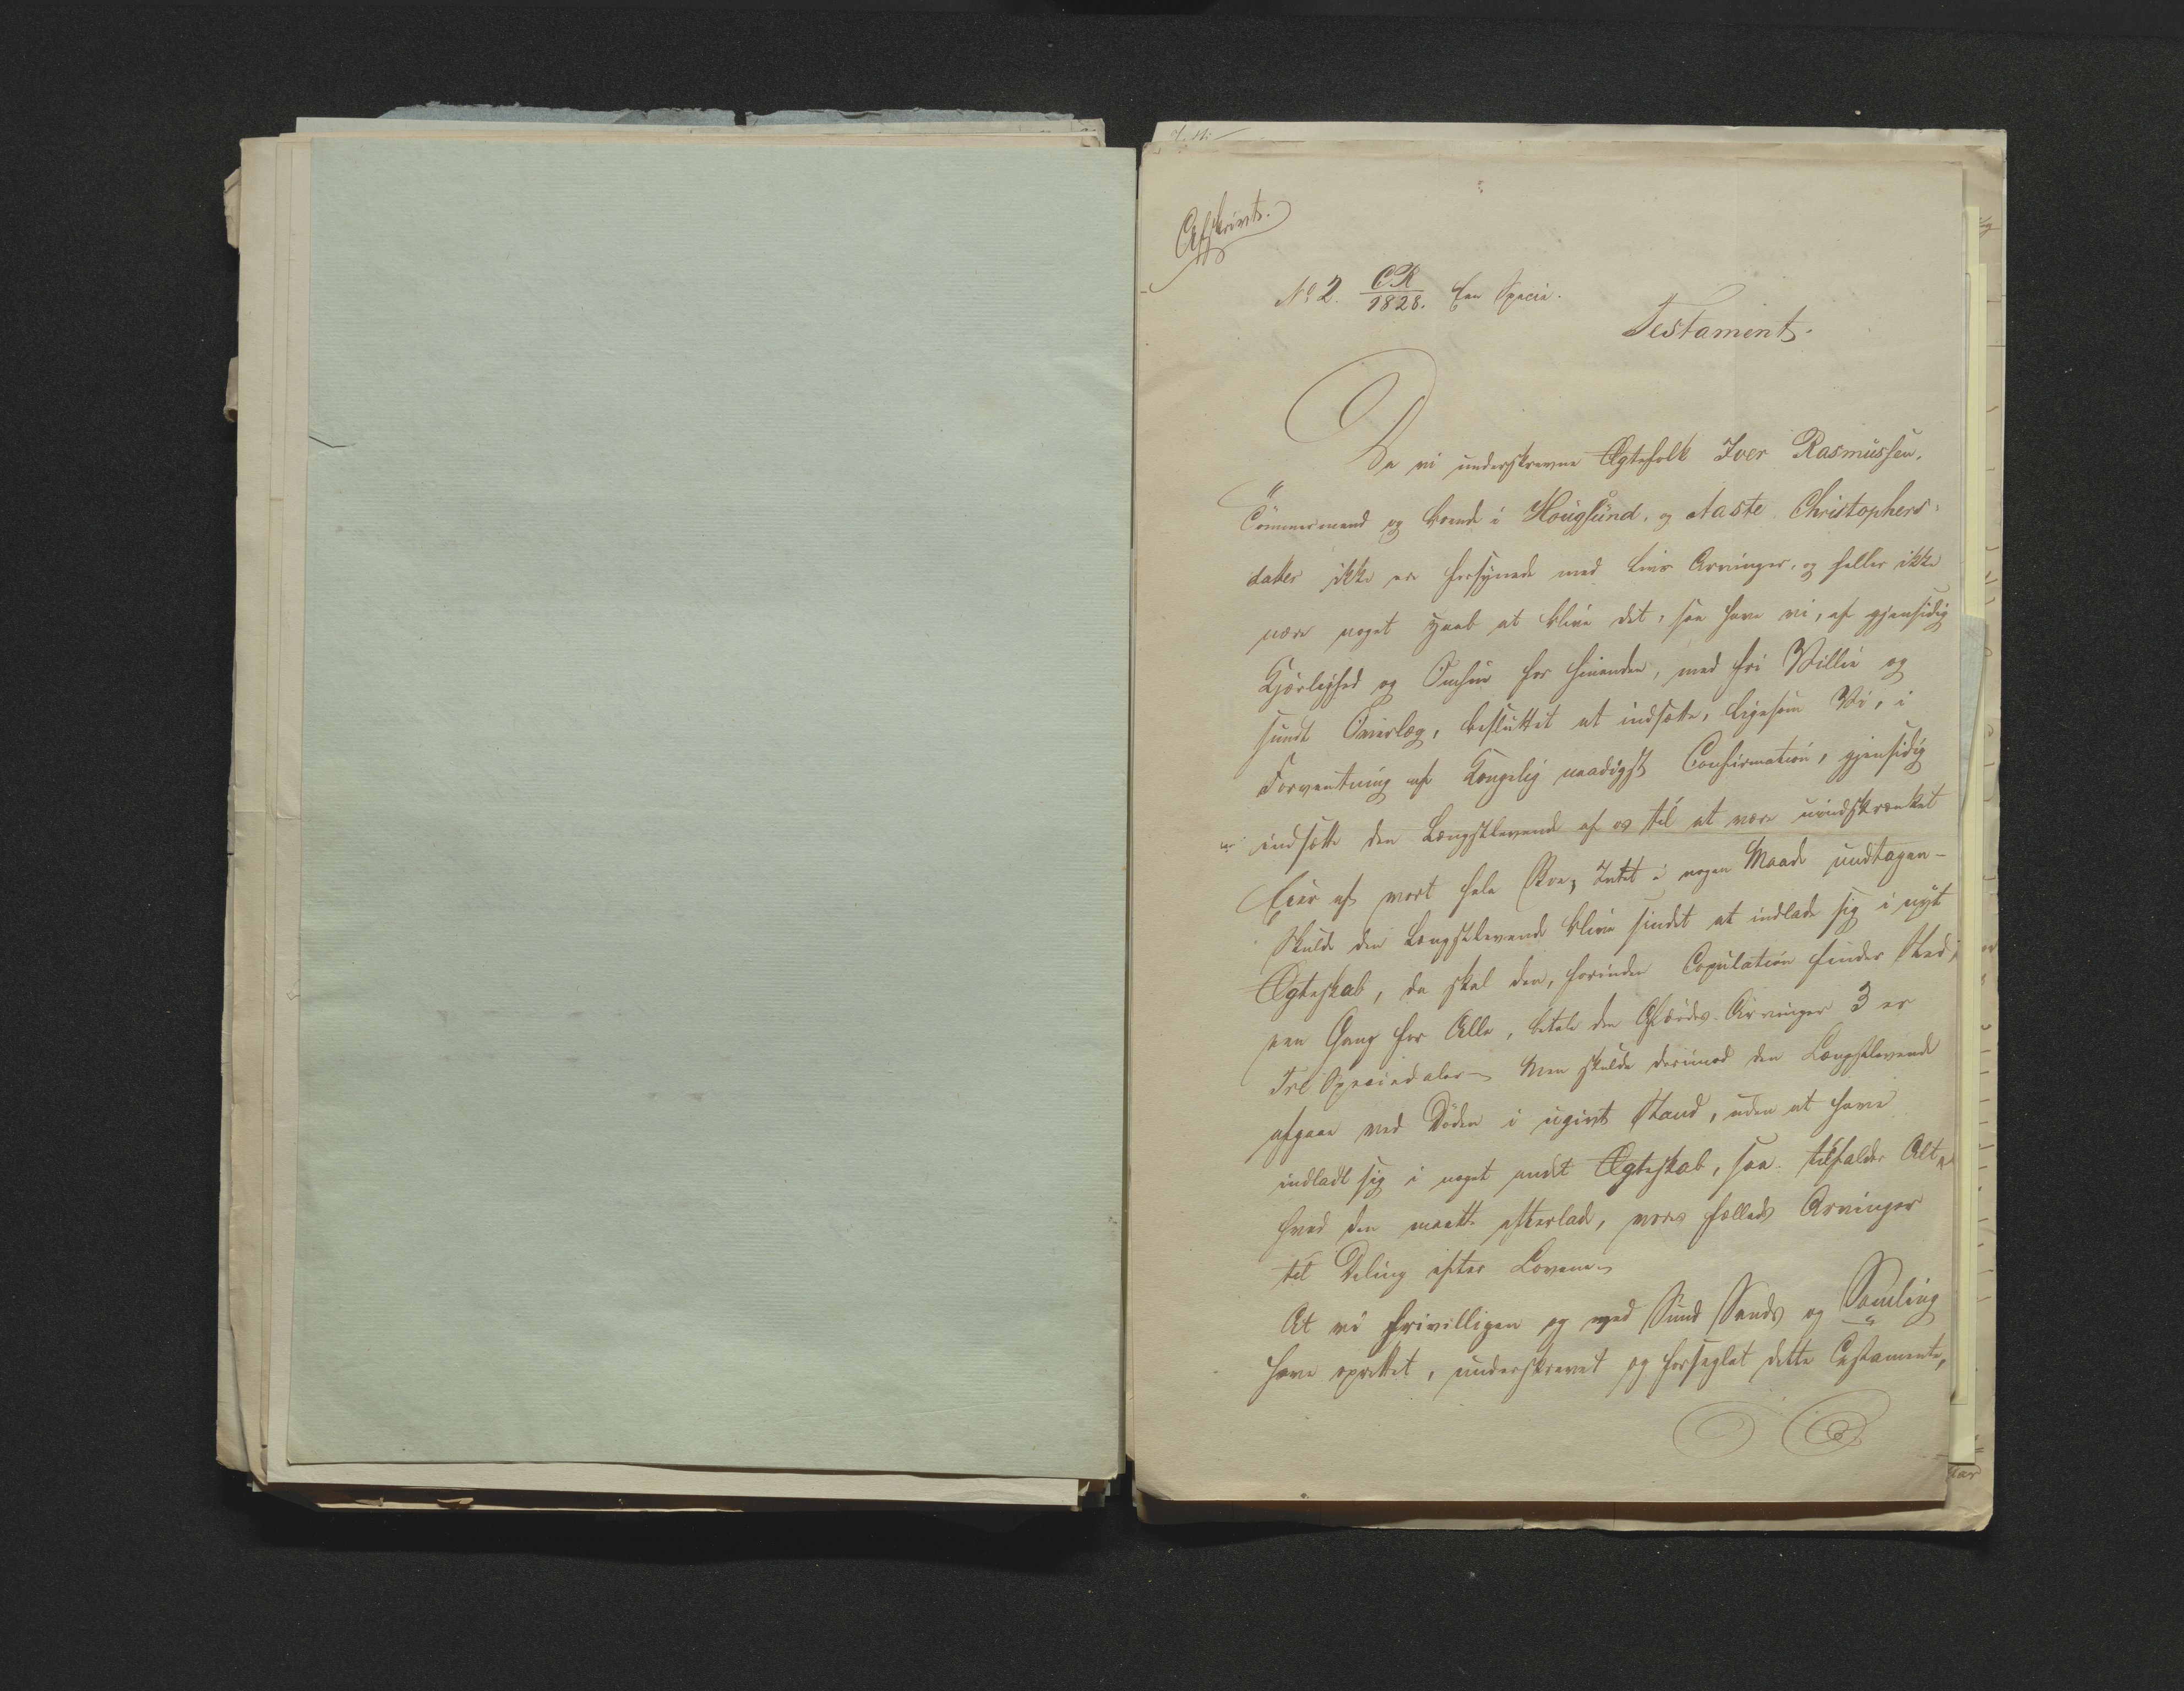 Afskrivt.
No 2. CR 1828. Een Specie.
Testament.
Da vi underskrevne Ægtefolk Iver Rasmussen,
Tömmermand og boende i Hougsund, og Aaste Christophers-
datter ikke er forsynede med Livs Arvinger, og heller ikke
nære noget Haab at blive det, saa have vi, af gjensidig
Kjærlighed og Omhue for hinanden, med fri Villie og
sundt Overlæg, besluttet at indsætte, ligesom Vi, i
Forventning af Kongelig naadigst Confirmation, gjensidig
indsætte den Længstlevende af os til at være uindskrænket
Eier af vort hele Boe, Intet i nogen Maade undtagen-
Skulde den Længstlevende blive sindet at indlade sig i nyt
Ægteskab, da skal den, forinden Copulation finder Sted,
een Gang for Alle, betale den Afdødes Arvinger 3 er
Tre Speciedaler- Men skulde derimod den Længstlevende
afgaae ved Döden i ugivt Stand, uden at have
indladt sig i noget andet Ægteskab, saa tilfalder Alt,
hvad den maatte efterlade, vores fælleds Arvinger
til Deling efter Lovene-
At vi frivilligen og med Sund Sands og Samling
have oprettet, underskrevet og forseglet dette Testamente,